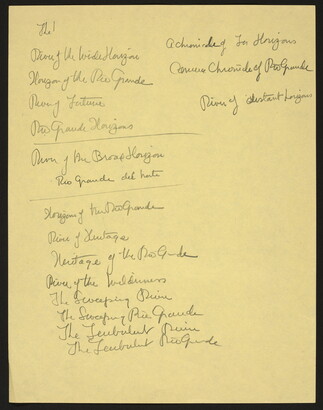 The!
River of the Wide Horizon
Horizon of the Rio Grande
River of Future
Rio Grande Horizons
River of the Broad Horizon
Rio Grande del Norte
Horizon of the Rio Grande
River of Heritage
Heritage of the Rio Grande
River of the Wilderness
The Sweeping River
The Sweeping Rio Grande
The Turbulent River
The Turbulent Rio Grande
A Chronicle of Far Horizons
Chronicle of Rio Grande
River of distant horizons